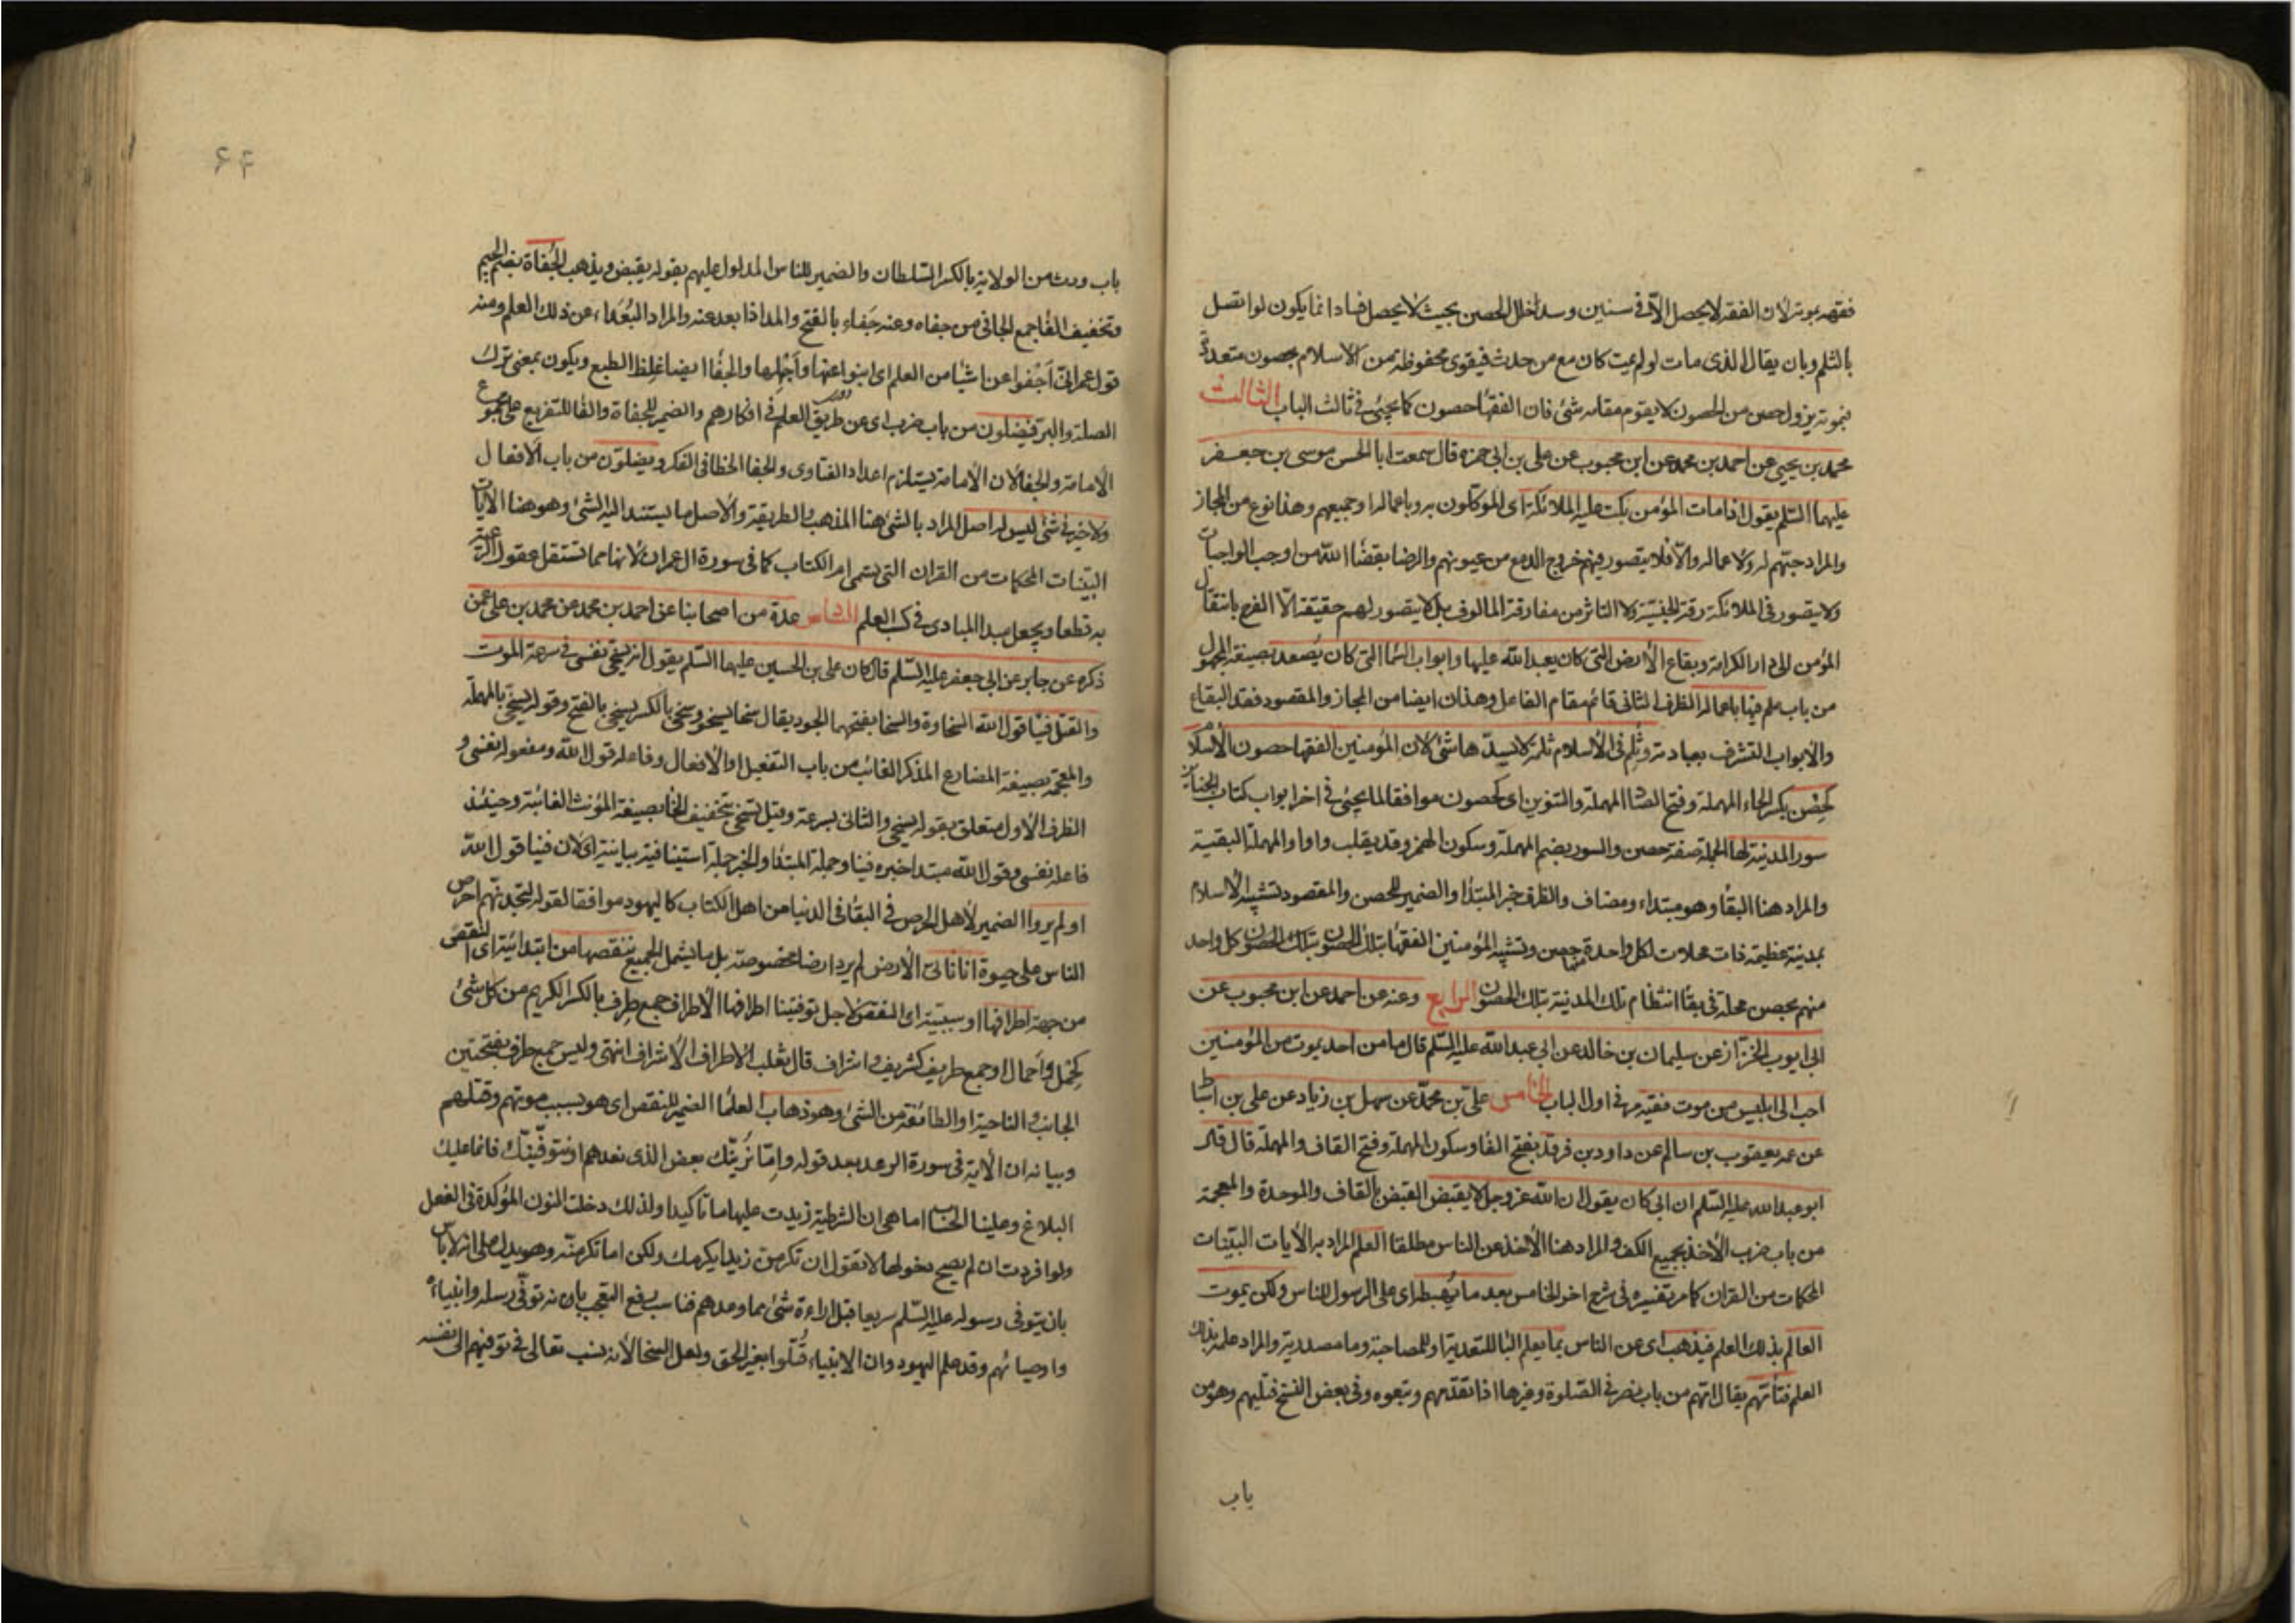 فقهه بموته لان الفقه لا يحصل الا في سنين وسد خلل الحصن بحيث لا يحصل فساد انما يكون لو اتصل
بالثلم وبان يقال الذي مات لو لم يمت كان مع من حدث فيقوى محفوظة من الاسلام بحصون متعددة
فبموته يزول حصن من الحصون لا يقوم مقامه شئ فان الفقها حصون كما يجئ في ثالث الباب الثالث
محمد بن يحيى عن احمد بن محمد عن ابن محبوب عن علي بن ابي حمزه قال سمعت ابا الحسن موسى بن جعفر
عليهما السلم يقول اذا مات المؤمن بكت عليه الملائكة اى الموكلون به وباعماله او جميعهم وهذا نوع من المجاز
والمراد حبّهم له ولاعماله والّا فلا يتصور فيهم خروج الدمع من عيونهم والرضا بقضا الله من اوجب الواجبات
ولا يتصور في الملائكة رقة الجنسية ولا التاثر من مفارقة المالوف بل لا يتصور لهم حقيقة الّا الفرح بانتقال
المؤمن الى دار الكرامة وبقاع الأرض التي كان يعبد الله عليها وابواب السّما التي كان يُصعد بصيغة المجهول
من باب علم فيها باعماله الظرف الثاني قائم مقام الفاعل وهذان ايضا من المجاز والمقصود فقد البقاع
والابواب التشرف بعبادته وثُلِم في الاسلام ثلمة لا يسدّها شئ لان المؤمنين الفقها حصون الاسلام
كحِصْن بكسر الحاء المهملة وفتح الصّا المهملة والتنوين اى كحصون موافقا لما يجئ في اخر ابواب كتاب الجنائز
سور المدينة لها الجملة صفة حصن والسور بضم المهملة وسكون الهمز وقد يقلب واوا والمهملة البقية
والمراد هنا البقا وهو مبتداء ومضاف والظرف خبر المبتدا والضمير للحصن والمقصود تشبيه الاسلام
بمدينة عظيمة ذات محلات لكل واحدة منها حصن وتشبيه المؤمنين الفقها بتلك الحصون بتلك الحصون كل واحد
منهم بحصن محلة في بقا انتظام تلك المدينة بتلك الحصون الرابع وعنه عن احمد عن ابن محبوب عن
ابى ايوب الخزّاز عن سليمان بن خالد عن ابى عبد الله عليه السّلم قال ما من احد يموت من المؤمنين
احب الى ابليس من موت فقيه مر في اول الباب الخامس علىّ بن محمّد عن سهل بن زياد عن على بن اسباط
عن عمه يعقوب بن سالم عن داود بن فرقد بفتح الفا وسكون المهملة وفتح القاف والمهملة قال قال
ابو عبد الله عليه السّلم ان ابي كان يقول ان الله عز وجل لا يقبض القبض بالقاف والموحدة والمعجمة
من باب ضرب الأخذ بجميع الكف والمراد هنا الأخذ عن الناس مطلقا العلم المراد به الآيات البيّنات
المحكمات من القران كما مر تفسيره في شرح اخر الخامس بعد ما يُهبط اى على الرسول للناس ولكن يموت
العالم بذلك العلم فيذهب اى عن الناس بما يعلم البا للتعدية او للمصاحبة وما مصدرية والمراد علمه بذلك
العلم فتأتهم يقال امّهم من باب نصر في الصّلوة وغيرها اذا تقدّمهم وتبعوه وفي بعض النسخ فتليهم وهو من
باب
۶۴
باب ورث من الولاية بالكسر السّلطان والضمير للناس المدلول عليهم بقوله يقبض ويذهب الجُفاة بضم الجيم
وتخفيف الفا جمع الجافى من جفاه وعنه جَفاء بالفتح والمد اذا بعد عنه والمراد البُعَداء عن ذلك العلم ومنه
قول عمر انّى اَجْفوا عن اشيا من العلم اى انبو اعنها واَجْهلها والجفا ايضا غلظ الطبع ويكون بمعنى ترك
الصلة والبر فيضلون من باب ضرب اى عن طريق العلم في افكارهم والضمير للجفاة والفا للتفريع على مجموع
الأمامة والجفا لان الأمامة يستلزم اعداد الفتاوى والجفا الخطا في الفكر ويضلوّن من باب الافعال
ولا خير في شئ ليس له اصل المراد بالشئ هنا المذهب والطريقة والاصل ما يستند اليه الشئ وهو هنا الآيات
البيّنات المحكمات من القران التي يسمى ام الكتاب كما في سورة ال عمران لانها مما تستقل عقول الرعية
به قطعا ويجعل مبدا المبادى في كسب العلم السادس عدة من اصحابنا عن احمد بن محمد عن محمد بن على عمن
ذكره عن جابر عن ابى جعفر عليه السّلم قال كان على بن الحسين عليهما السّلم يقول انه يسخّى نفسى في سرعة الموت
والقتل فينا قول الله السخاوة والسخا بفتحهما الجود يقال سخا يسخو وسخى بالكسر يسخى بالفتح وقوله يسخّى بالمهملة
والمعجمة بصيغة المضارع المذكر الغائب من باب التفعيل او الافعال وفاعله قول الله ومفعوله نفسى و
الظرف الاول متعلق بقوله يسخى والثانى بسرعة وقيل تسخى بتخفيف الخا بصيغة المؤنث الغائبة وحينئذ
فاعله نفسى وقول الله مبتدا خبره فينا وجملة المبتدا والخبر جملة استينافية بيانية اى لان فينا قول الله
اولم يروا الضمير لأهل الحرص في البقا في الدنيا من اهل الكتاب كاليهود موافقا لقوله لتجدنّهم احرص
الناس على حيوة انا ناتى الأرض لم يرد ارضا مخصوصة بل ما يشمل الجميع ننقصها من ابتدائية اى النقص
من جهة اطرافها او سببية اى النقص لاجل توفيتنا اطرافها الأطراف جمع طِرف بالكسر الكريم من كل شئ
كحِمْل واَحمال او جمع طريف كشريف واشراف قال ثعلب الاطراف الأشراف انتهى وليس جمع طرف بفتحتين
الجانب والناحية او الطائفة من الشئ وهو ذهاب العلما الضمير للنقص اى هو بسبب موتهم وقتلهم
وبيانه ان الآية في سورة الرعد بعد قوله وامّا نُرِيَنّك بعض الذى نعدهم او نتوفّينّك فانما عليك
البلاغ وعلينا الحساب اما هى ان الشرطية زيدت عليها ما تاكيدا ولذلك دخلت النون المؤكدة في الفعل
ولو افردت ان لم يصح دخولها لا تقول ان تكرمنّ زيدا يكرمك ولكن اما تكرمنّه وهو يدل على انه لا باس
بان يتوفى رسوله عليه السّلم سريعا قبل اراءة شئ مما وعدهم فناسب دفع التعجب بان نه توفّى رسله وانبياءه
واوصيائهم وقد علم اليهود وان الانبياء قُتّلوا بغير الحق ولعل السخا لأنه نسب تعالى في توفيهم الى نفسه